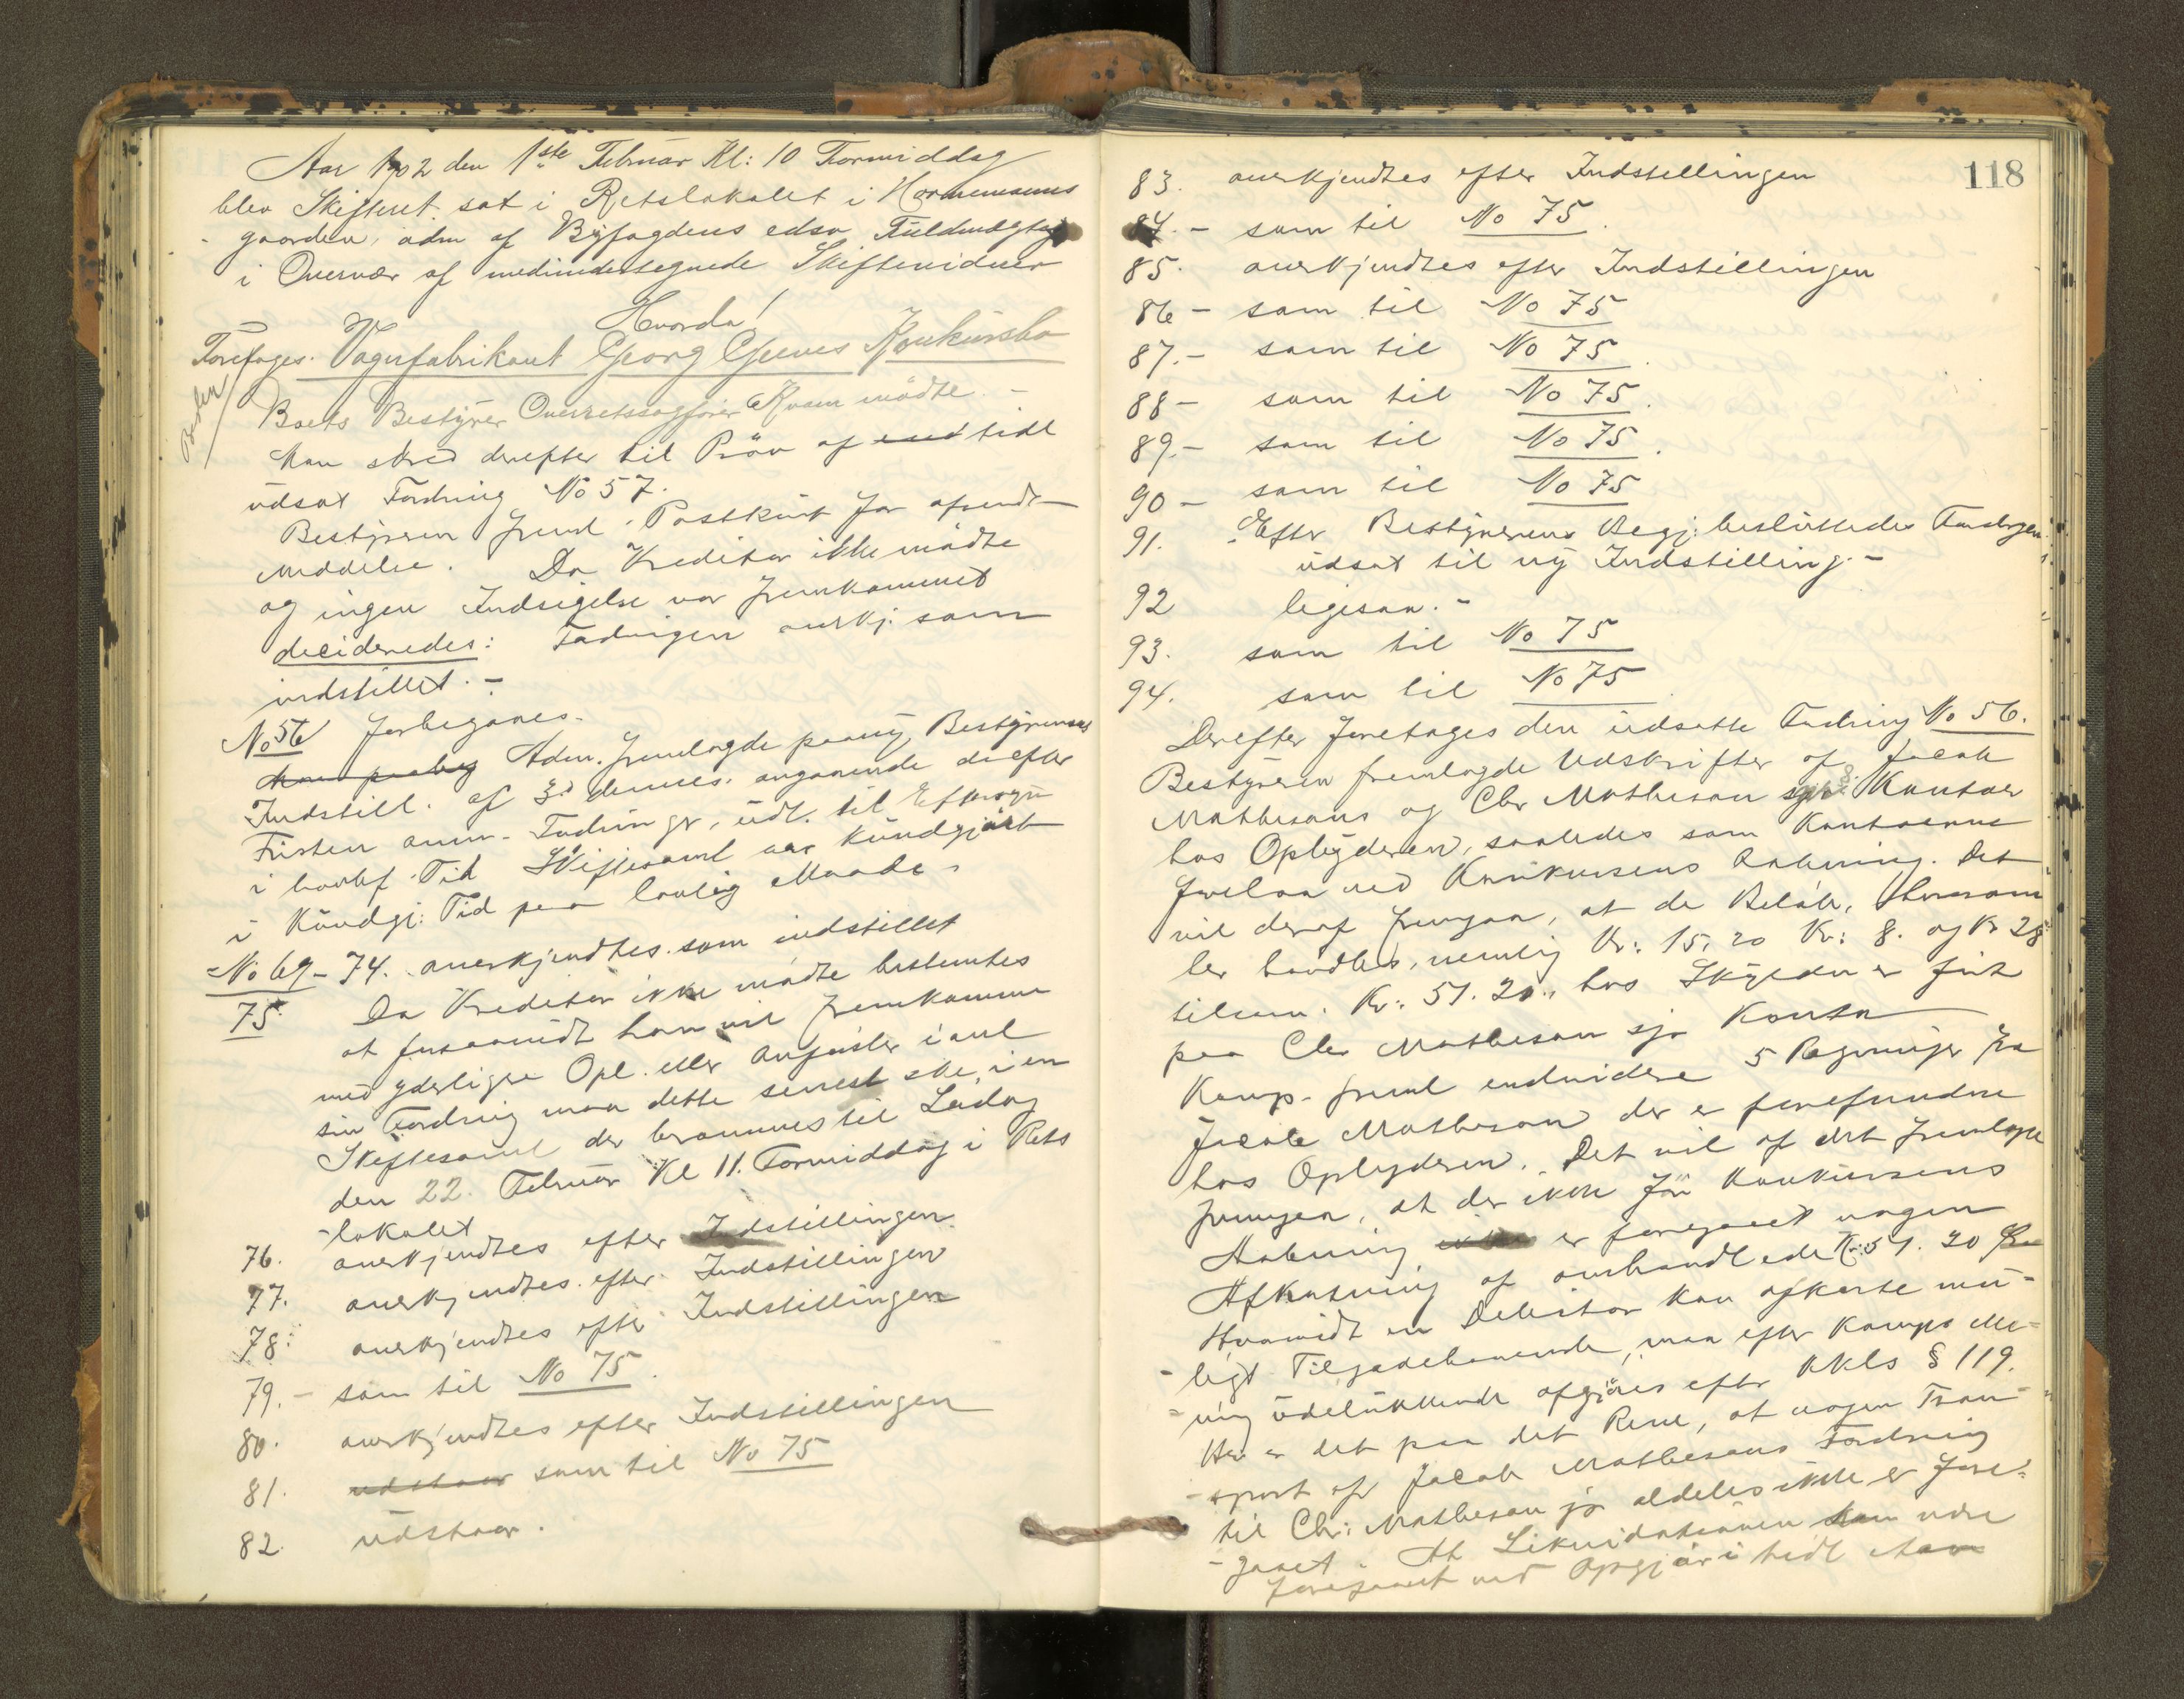 Aar 1902 den 1ste Februar Kl: 10 Formiddag
blev Skifteret sat i Retslokalet i Hornemans
gaarden, adm af Byfogdens edsv. Fuldmægtig
i Overvær af medundertegnede Skiftevidner
Hvorda!
Foretages. Vognfabrikant Georg Gjeems Konkursbo
Boets Bestyrer Overretssagfører Kvam mødte. -
Man skred derefter til Prøv af tidl
udsat Fordring No 57.
Bestyreren freml. Postkvit for afsendt
Meddelse. Da Kreditor ikke mødte
og ingen Indsigelse var fremkommet
decideredes: Fordringen anerkj. som
indstillet. -
No 56 forbigaaes.
Adm. fremlagde paany Bestyrerens
Indstill. af 3d dennes. angaaende de efter
Fristen anm. Fordringer, udl. til Eftersyn
i lovbef. Tid Skiftesaml var kundgjort
i Kundgj: Tid paa lovlig Maade.
No 69-74. anerkjendtes. som indstillet
75. Da Kreditor ikke mødte bestemtes
at forsaavidt han vil fremkomme
med yderligere Opl. eller Anførsler i anl
sin Fordring maa dette senest ske i en
Skiftesaml der berammes til Lørdag
den 22. Februar Kl 11. Formiddag i Rets
-lokalet
76. anerkjendtes efter Indstillingen
77. anerkjendtes. efter Indstillingen
78: anerkjendtes efter Indstillingen
79. - som til No 75.
80. anerkjendtes efter Indstillingen
81. udstaar som til No 75
82. udstaar.
118
83. anerkjendtes efter Indstillingen
84. - som til No 75.
85. anerkjendtes efter Indstillingen
86 - som til No 75
87. - som til No 75.
88 - som til No 75.
89. - som til No 75.
90 - som til No 75
91. Efter Bestyrerens Begj: besluttedes Fordrgen
udsat til ny Indstilling. -
92 ligesaa. -
93. som til No 75
94. som til No 75
Derefter foretages den udsatte Fordring No 56.
Bestyreren fremlagde Udskrifter af Jacob
Mathesons og Chr Matheson Kontoer
hos Opbyderen, saaledes som Kontoerne
forelaa ved Konkursens Aabning. Det
vil deraf fremgaa, at de Beløb, hvorom
her handles, nemlig Kr: 15,20 Kr: 8. og Kr 28
tilsam. Kr: 51.20., hos Skyldner er ført
paa Chr Matheson sjr Konto
Komp. freml endvidere 5 Regninger fra
Jacob Matheson der er forefundne
hos Opbyderen. Det vil af det fremlagte
fremgaa, at der ikke før Konkursens
Aabning er foregaaet nogen
Afkortning af omhandlede Kr: 51.20
Hvorvidt en Debitor kan afkorte mu-
-ligt Tilgodehavende, maa efter Komps Me-
-ning udelukkende afgjøres efter KKls § 119.
Her er det paa det Rene, at nogen Tran-
-sport af Jacob Mathesons Fordring
til Chr: Matheson jr aldeles ikke er fore-
-gaaet. At Likvidationen skan være
foregaaet ved Opgjør i tidl